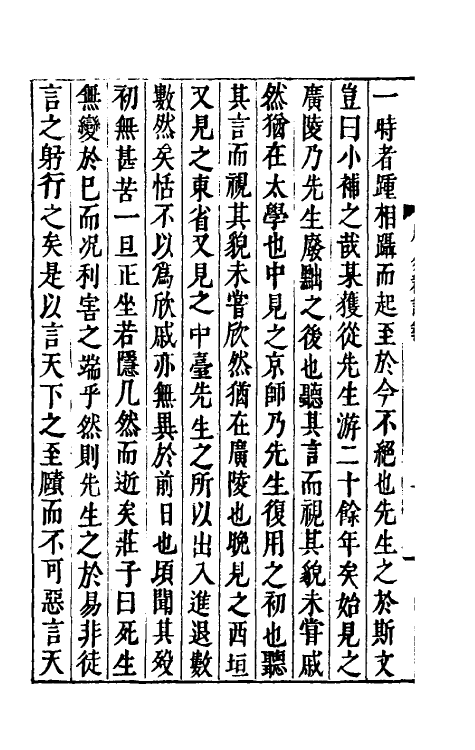 一時者踵相躡而起至於今不絕也先生之於斯文
豈曰小補之哉某獲從先生游二十餘年矣始見之
廣陵乃先生廢黜之後也聽其言而視其貌未嘗戚
然猶在太學也中見之京師乃先生復用之初也聽
其言而視其貌未嘗欣然猶在廣陵也晚見之西垣
又見之東省又見之中臺先生之所以出入進退數
數然矣恬不以爲欣戚亦無異於前日也頃聞其歿
初無甚苦一旦正坐若隱几然而逝矣莊子曰死生
無變於巳而况利害之端乎然則先生之於易非徒
言之躬行之矣是以言天下之至賾而不可惡言天